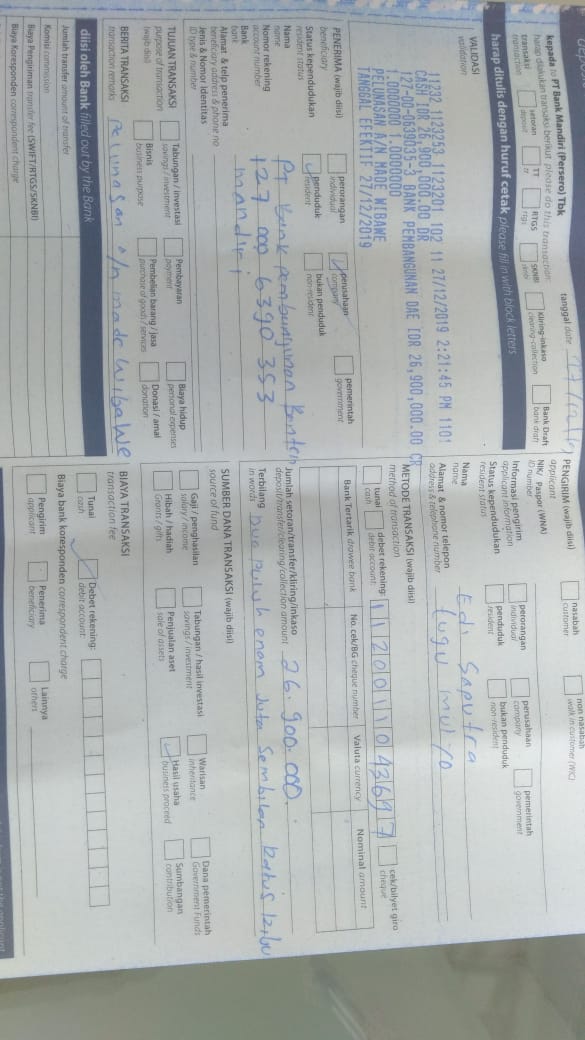 kepada to PT Bank Mandiri (Persero) Tbk
harap dilakukan transaksi berikut please do this transaction:
tanggal date
transaksi
transaction
setoran
deposit
TT
tt
RTGS
rtgs
SKNBI
sknbi
Kliring-inkaso
clearing-collection
Bank Draft
bank draft
harap ditulis dengan huruf cetak please fill in with block letters
VALIDASI
validation
11232 1123253 1123201 102 11 27/12/2019 2:21:45 PM 1101
CASH IDR 26,900,000.00 DR
BANK PEMBANGUNAN DAE IDR 26,900,000.00 CR
PELUNASAN A/N MADE WIBAWE
TANGGAL EFEKTIF 27/12/2019
PENERIMA (wajib diisi)
beneficiary
perorangan
individual
perusahaan
company
pemerintah
government
Status kependudukan
resident status
penduduk
resident
bukan penduduk
non-resident
Nama
name
PT Bank pembangunan Banten
Nomor rekening
account number
127 000 6390 353
Bank
bank
mandiri
Alamat & telp penerima
beneficiary address & phone no
Jenis & Nomor Identitas
ID type & number
TUJUAN TRANSAKSI
purpose of transaction
(wajib diisi)
Tabungan / investasi
savings / investment
Pembayaran
payment
Biaya hidup
personal expenses
Bisnis
business purpose
Pembelian barang / jasa
purchase of goods / services
Donasi / amal
donation
BERITA TRANSAKSI
transaction remarks
pelunasan a/n made wibawe
diisi oleh Bank filled out by the Bank
Jumlah transfer amount of transfer
Komisi commission
Biaya Pengiriman transfer fee (SWIFT/RTGS/SKNBI)
Biaya Koresponden correspondent charge
PENGIRIM (wajib diisi)
applicant
nasabah
customer
non nasabah
walk in customer (WIC)
NIK/ Paspor (WNA)
ID number
Informasi pengirim
applicant information
perorangan
individual
perusahaan
company
pemerintah
government
Status kependudukan
resident status
penduduk
resident
bukan penduduk
non-resident
Nama
name
Edi Saputra
Alamat & nomor telepon
address & telephone number
tugu mulyo
METODE TRANSAKSI (wajib diisi)
method of transaction
tunai
cash
debet rekening:
debit account:
1120011043697
cek/bilyet giro
cheque
Bank Tertarik drawee bank
No. cek/BG cheque number
Valuta currency
Nominal amount
Jumlah setoran/transfer/kliring/inkaso
deposit/transfer/clearing/collection amount
26.900.000.
Terbilang
in words
Dua puluh enam Juta Sembilan Ratus
SUMBER DANA TRANSAKSI (wajib diisi)
source of fund
Gaji / penghasilan
salary / income
Tabungan / hasil investasi
savings / investment
Warisan
inheritance
Dana pemerintah
Government Funds
Hibah / hadiah
Grants / gifts
Penjualan aset
sale of assets
Hasil usaha
business proceed
Sumbangan
contribution
BIAYA TRANSAKSI
transaction fee
Tunai
cash
Debet rekening:
debit account:
Biaya bank koresponden correspondent charge
Pengirim
applicant
Penerima
beneficiary
Lainnya
others